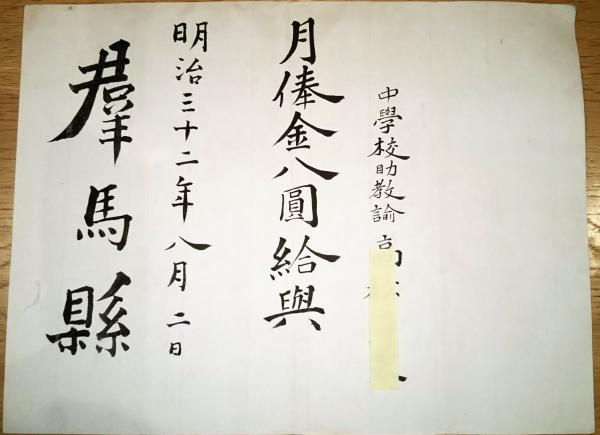 中學校助教諭 高
月俸金八圓給與
明治三十二年八月二日
羣馬縣